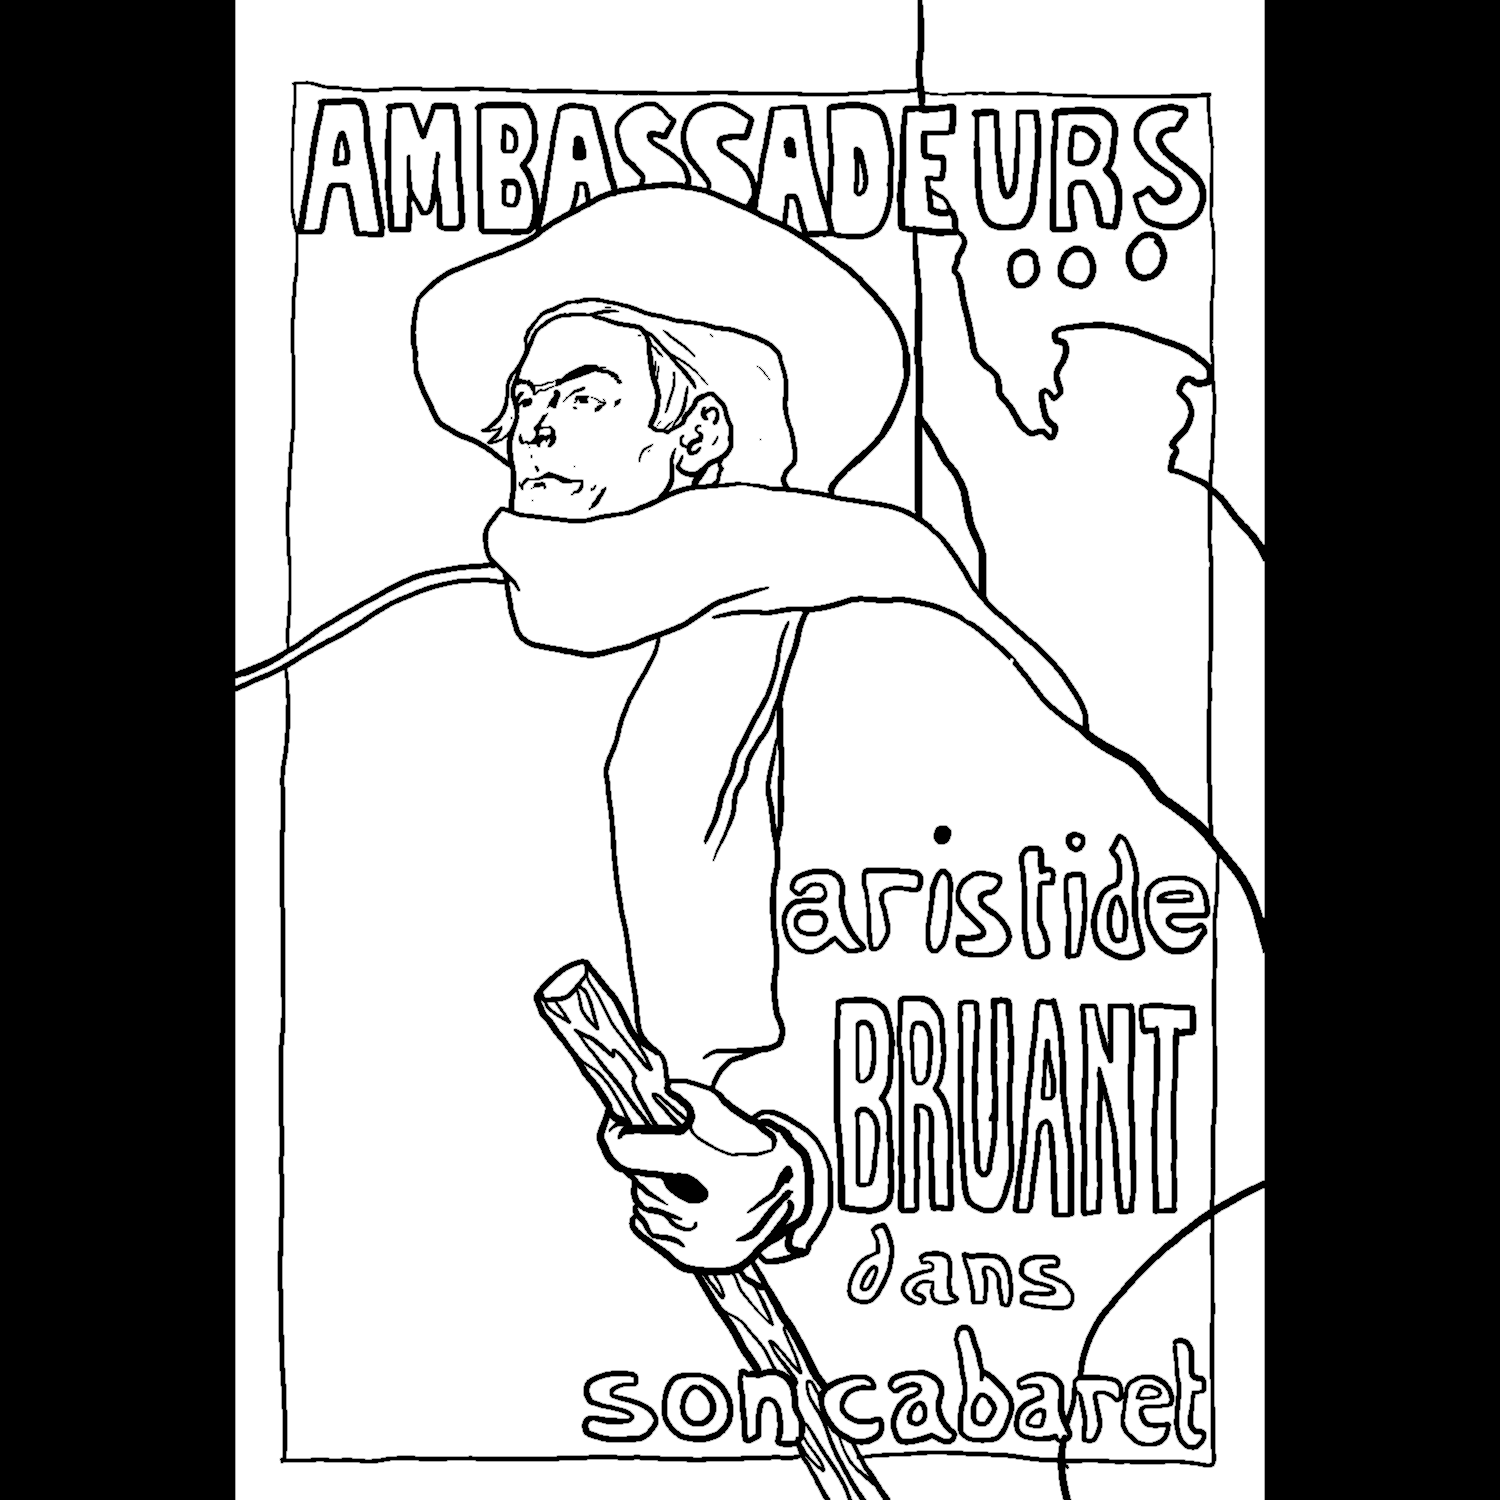 AMBASSADEURS...
aristide
BRUANT
dans
son cabaret